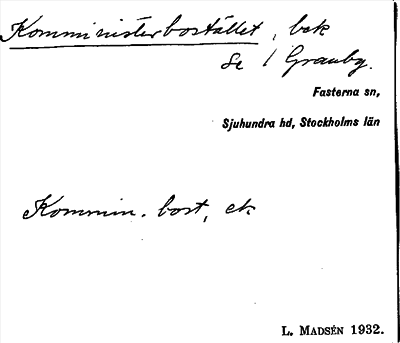 Komministerbostället, bek
Se / Granby.
Fasterna sn,
Sjuhundra hd, Stockholms län
Kommin. bost, ek
L. MADSÉN 1932.